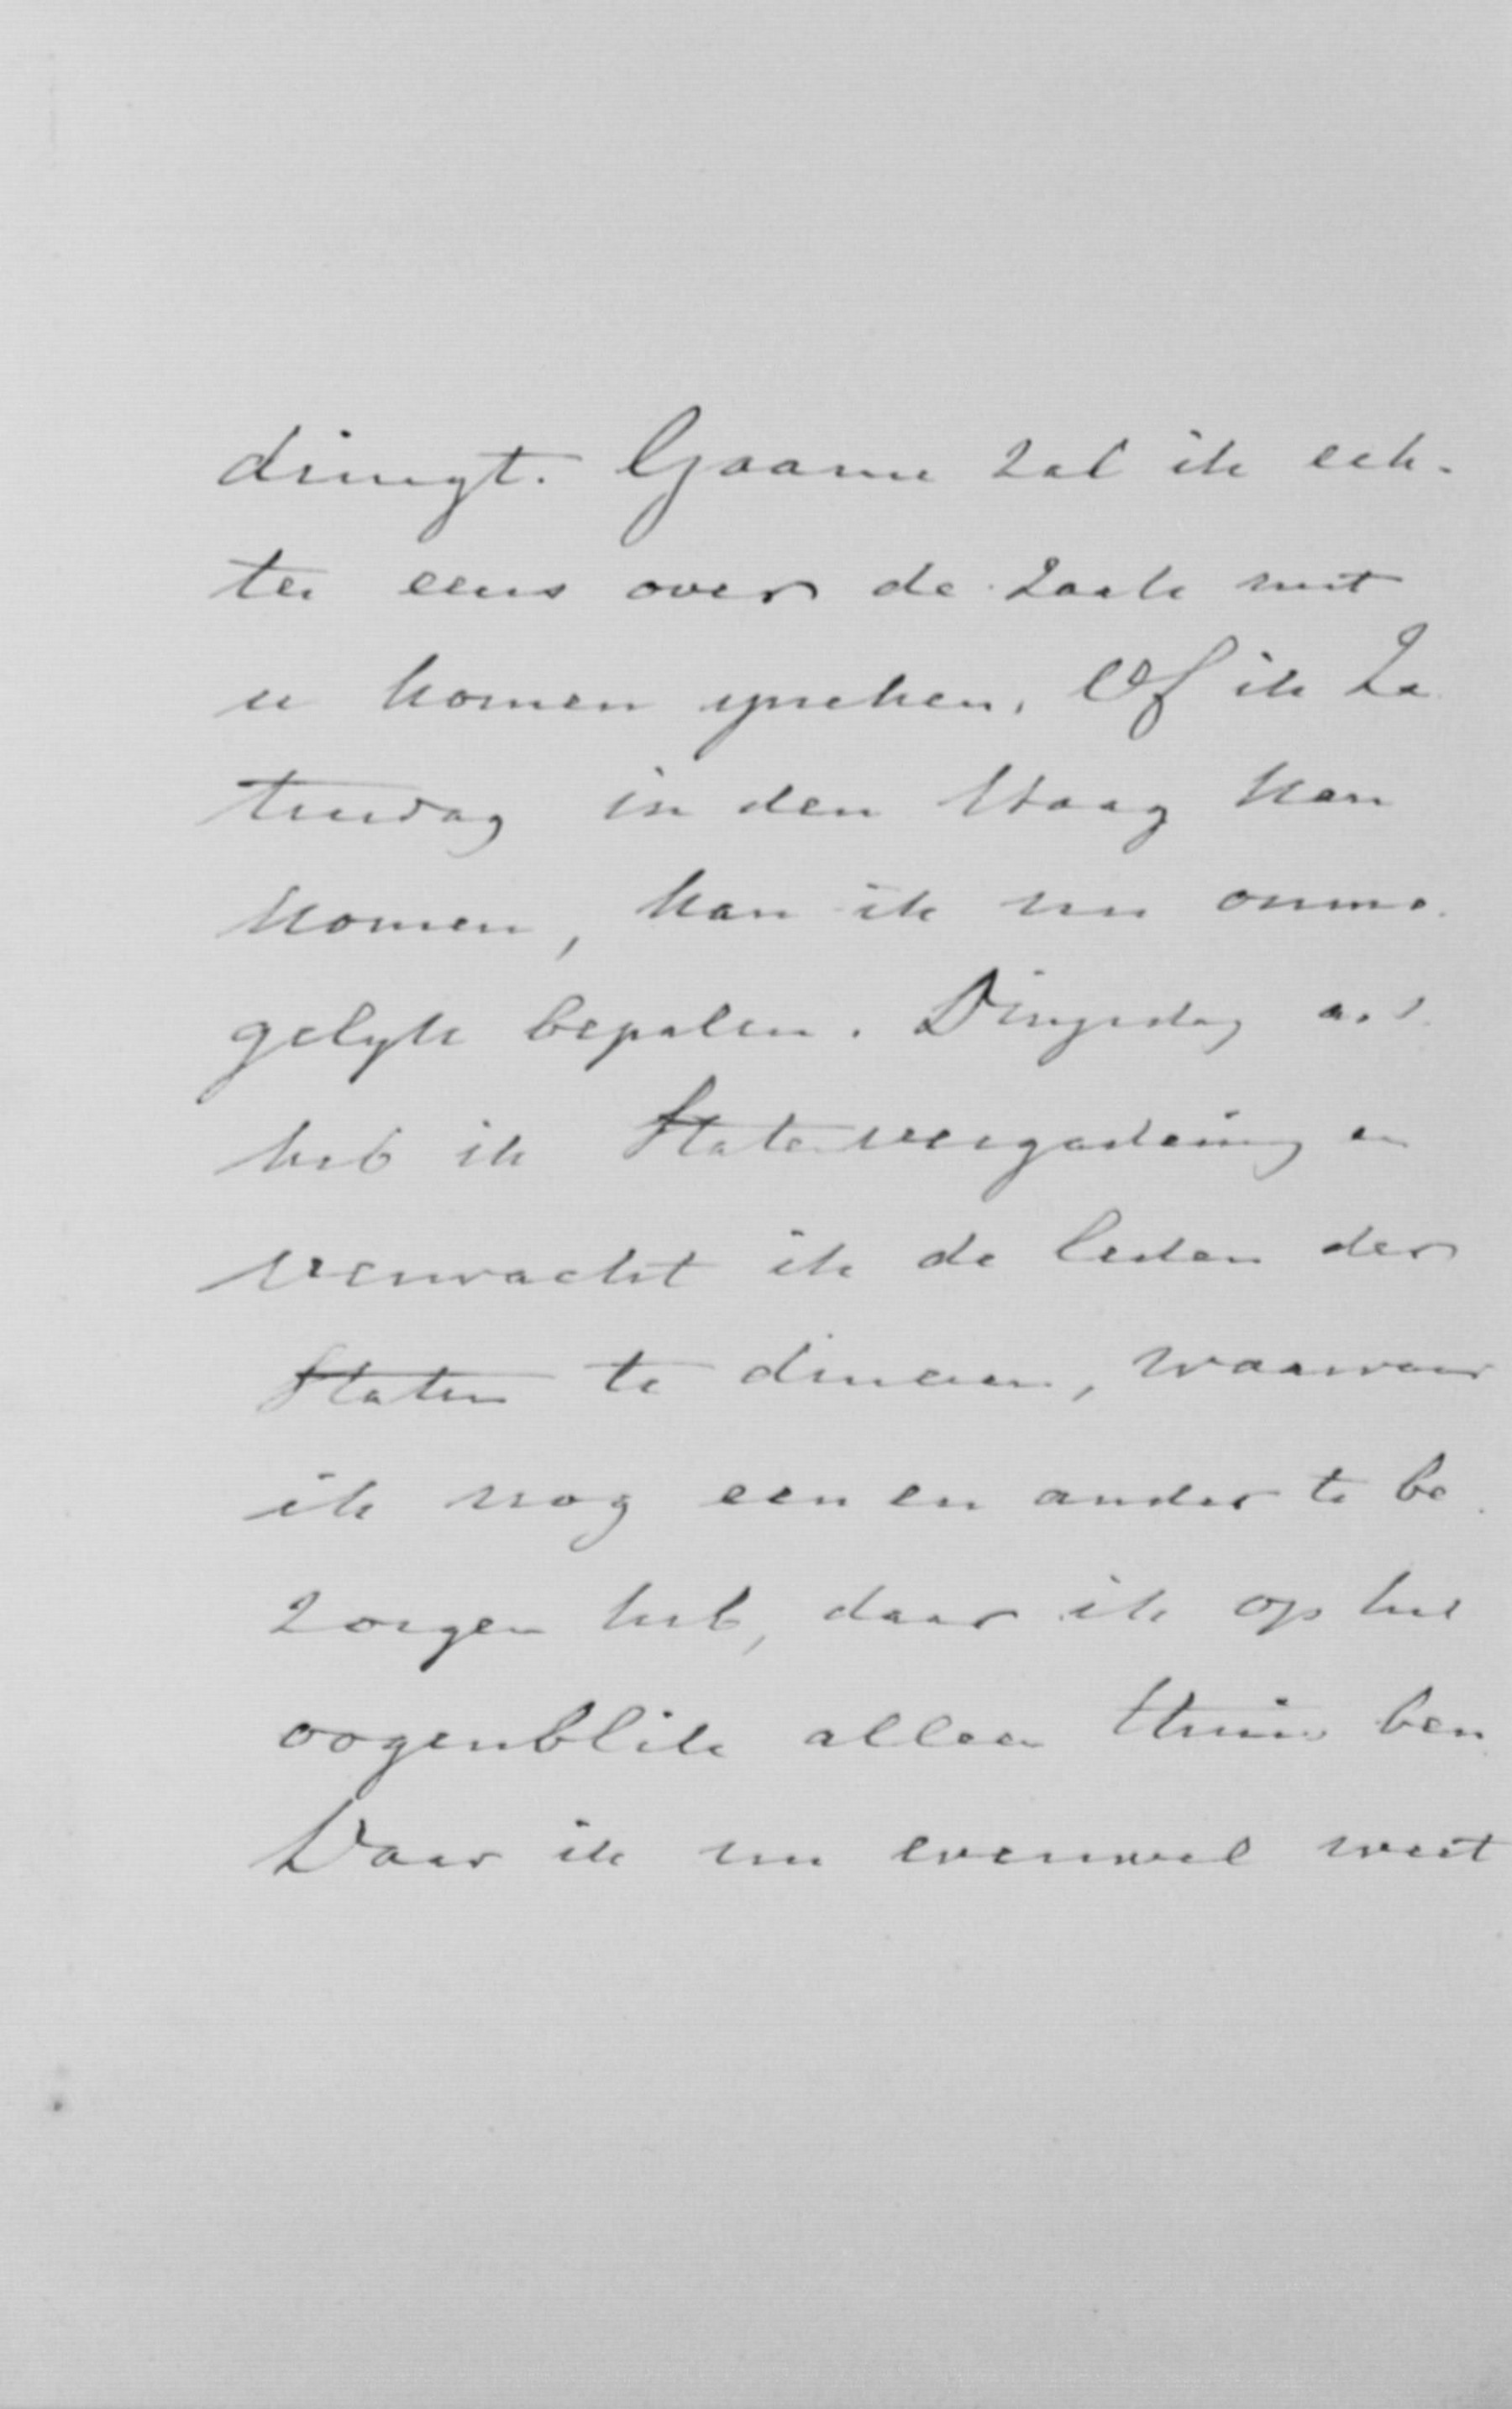 dringt. Gaarne zal ik ech-
ter eens over de zaak met
u komen spreken. Of ik Za
turdag in den Haag kan
komen, kan ik nu onmo-
gelyk bepalen. Dingsdag a.s.
heb ik Statenvergadering en
verwacht ik de leden der
Staten te dineren, waarvoor
ik nog een en ander te be
zorgen heb, daar ik op het
oogenblik alleen thuis ben
Daar ik nu evenwel weet